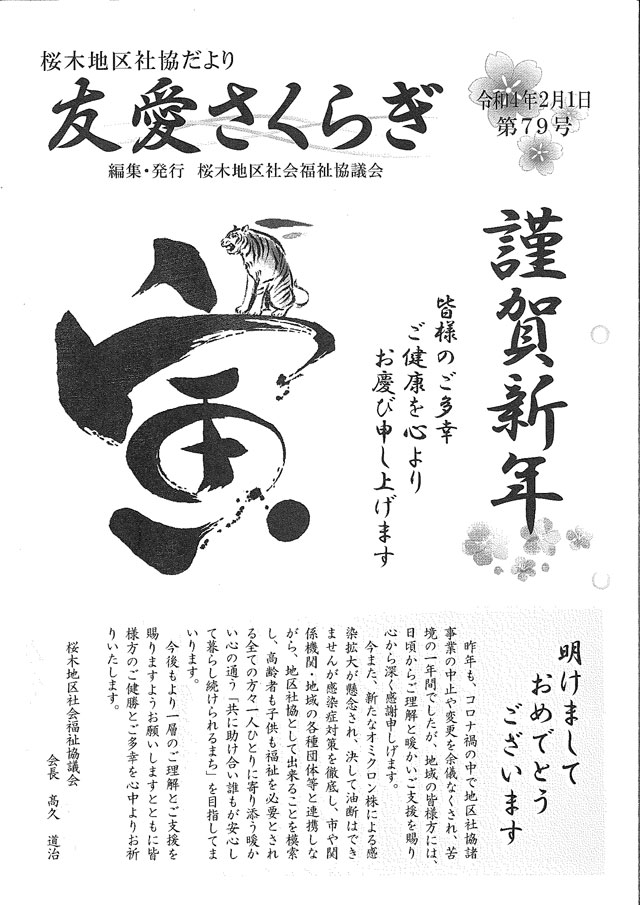 桜木地区社協だより
友愛さくらぎ
編集・発行 桜木地区社会福祉協議会
令和4年2月1日
第79号
謹賀新年
皆様のご多幸
ご健康を心より
お慶び申し上げます
寅
明けまして
おめでとう
ございます
昨年も、コロナ禍の中で地区社協諸
事業の中止や変更を余儀なくされ、苦
境の一年間でしたが、地域の皆様方には、
日頃からご理解と暖かいご支援を賜り
心から深く感謝申しげます。
今また、新たなオミクロン株による感
染拡大が懸念され、決して油断はでき
ませんが感染症対策を徹底し、市や関
係機関・地域の各種団体等と連携しな
がら、地区社協として出来ることを模索
し、高齢者も子供も福祉を必要とされ
る全ての方々一人ひとりに寄り添う暖か
い心の通う「共に助け合い誰もが安心し
て暮らし続けられるまち」を目指してま
いります。
今後もより一層のご理解とご支援を
賜りますようお願いしますとともに皆
様方のご健勝とご多幸を心中よりお祈
りいたします。
桜木地区社会福祉協議会
会長 高久 道治